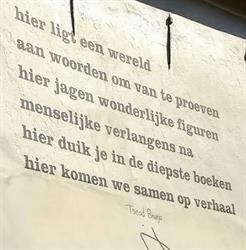 hier ligt een wereld
aan woorden om van te proeven
hier jagen wonderlijke figuren
menselijke verlangens na
hier duik je in de diepste boeken
hier komen we samen op verhaal